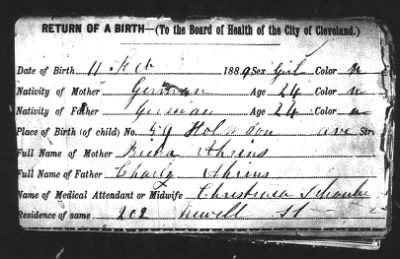 RETURN OF A BIRTH—(To the Board of Health of the City of Cleveland.)
Date of Birth 11 Feb 1889 Sex Girl Color w
Nativity of Mother German Age 24 Color w
Nativity of Father German Age 24 Color w
Place of Birth (of child) No. 59 ave Str
Full Name of Mother Ahrins
Full Name of Father Charly Ahrins
Name of Medical Attendant or Midwife Christiana
Residence of same 202 Newell St